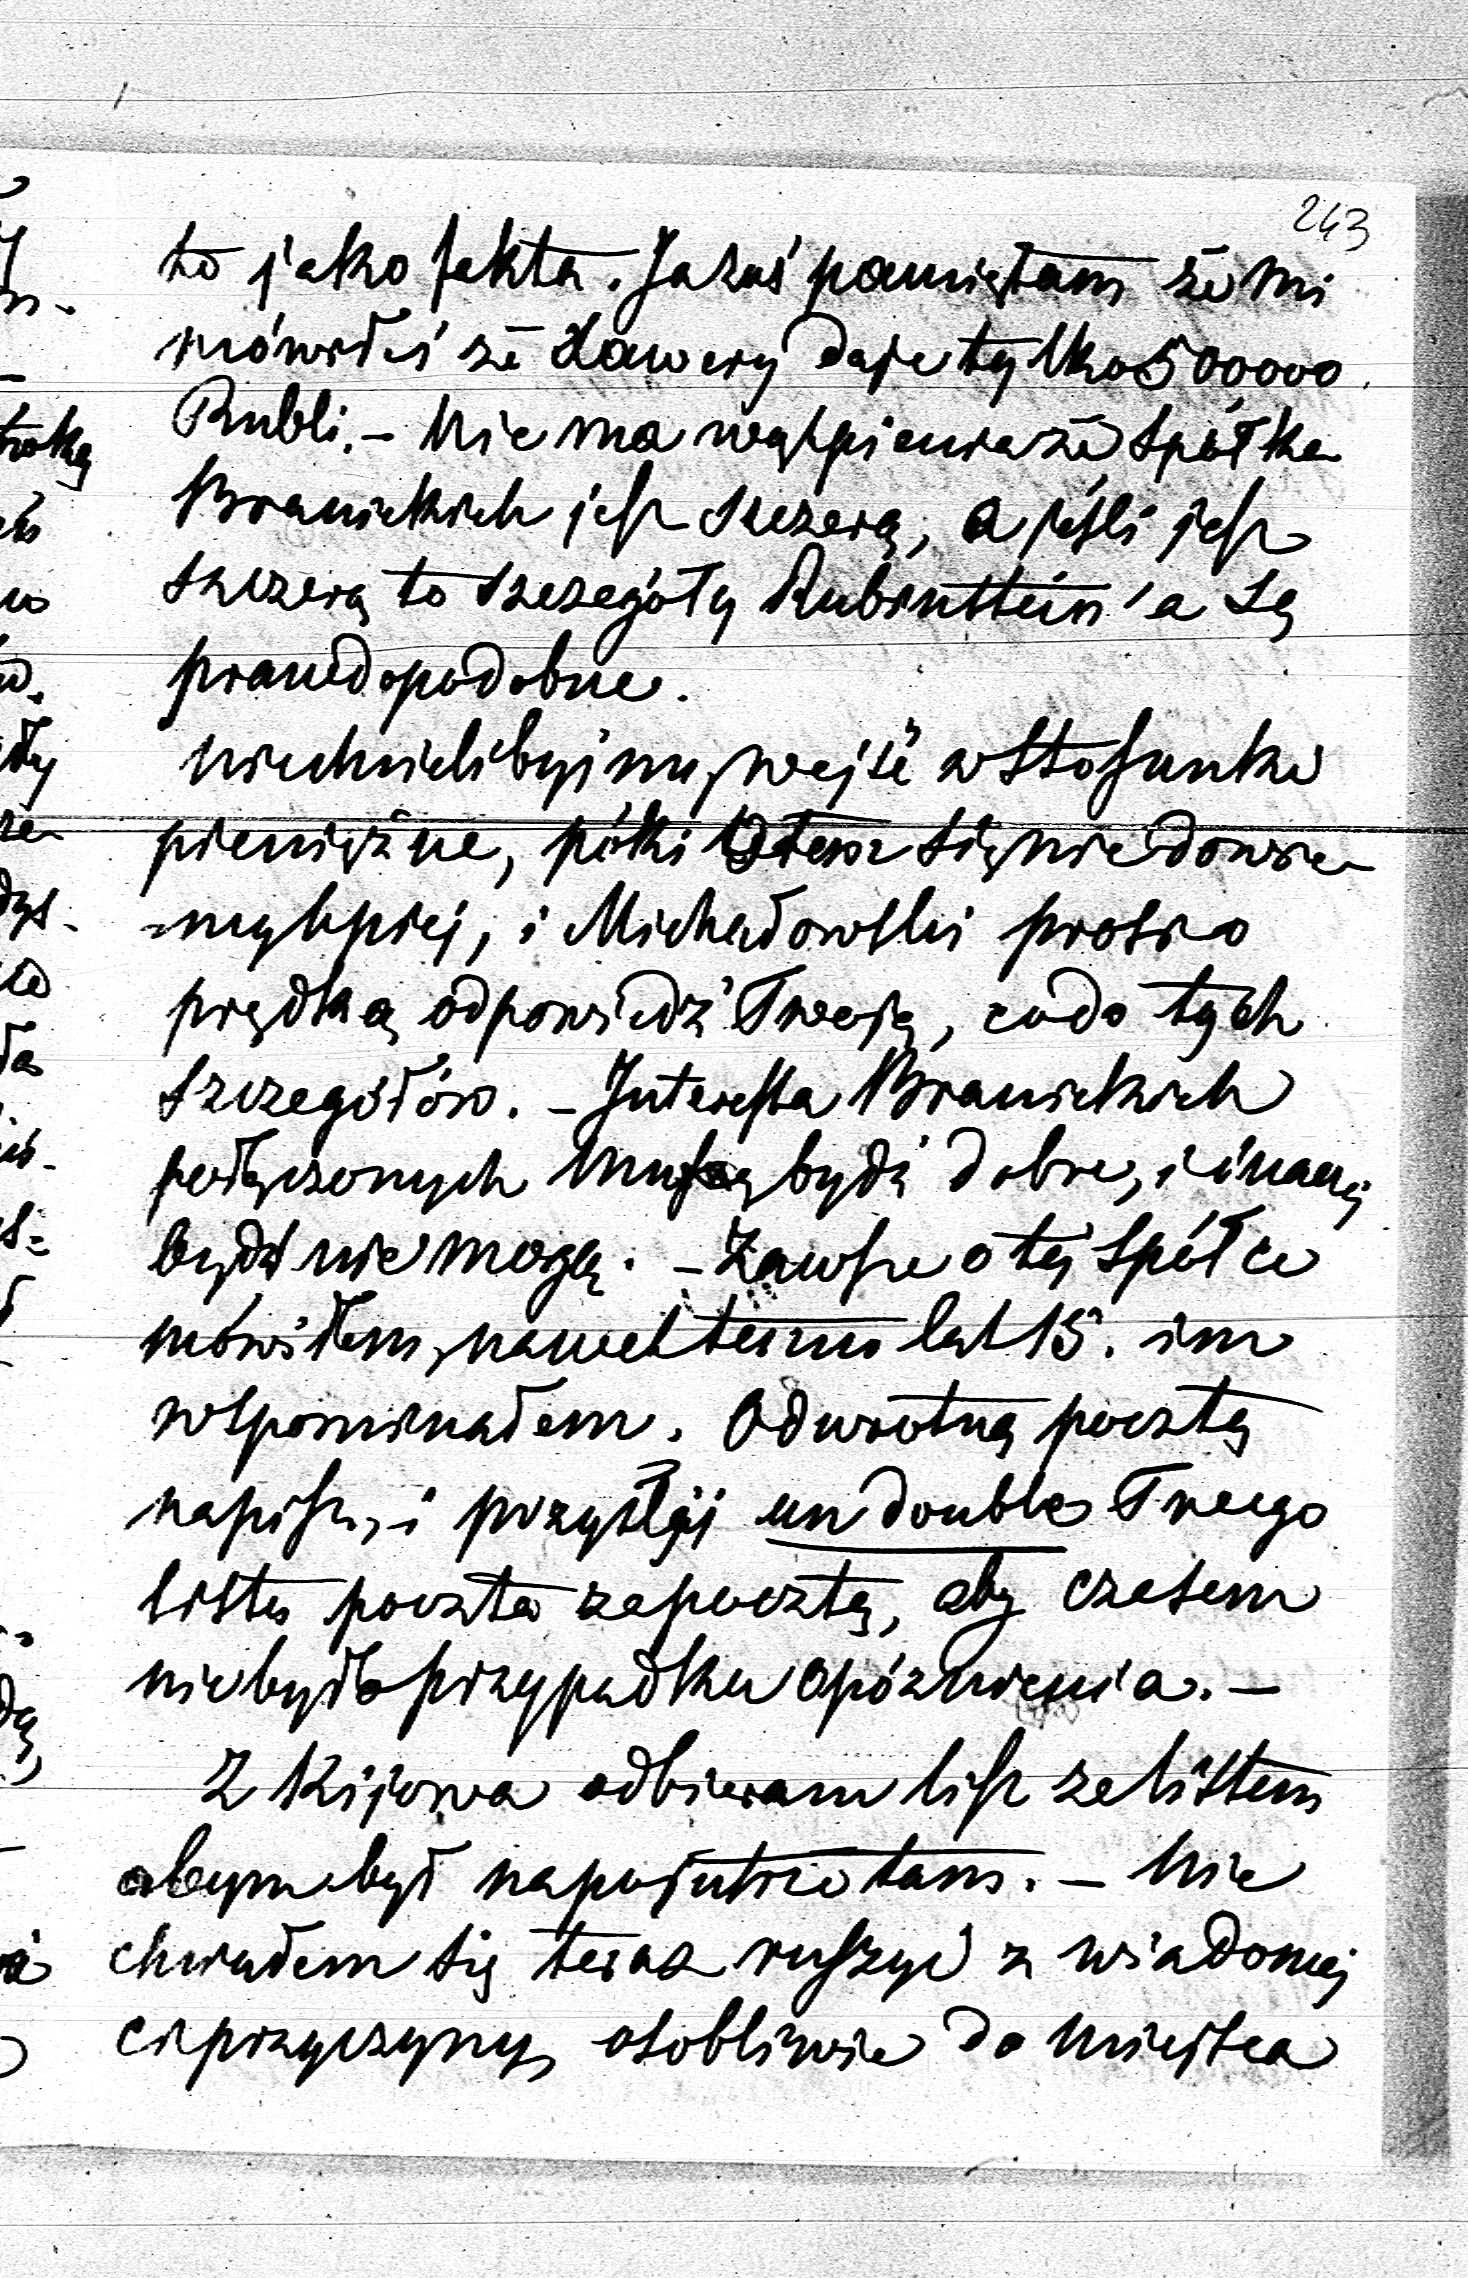 243
to jako fakta. Ja zaś pamiętam że mi
mówiłeś że Xawery daje tylko 500,000
Rubli. – Nie ma wątpienia że Spółka
Branickich jest szczerą, a jeśli jest
szczerą to szczegóły Rubinstein'a są
prawdopodobne.
niechcielibyśmy wejść w stosunki
pieniężne, póki się nie dowie-
-my lepiej, i Michałowski prosi o
prędką odpowiedź Twoją, co do tych
szczegółów. – Interessa Branickich
połączonych muszą bydź dobre, i inaczej
bydź nie mogą. – Zawsze o tej Spółce
mówiłem, nawet temu lat 15. im
wspominałem. Odwrotną pocztą
napisz, i przyślij un double Twego
listu poczta za pocztą, aby czasem
niebyło przypadku opóźnienia. –
Z Kijowa odbieram list za listem
abym był na pojutrze tam. – Nie
chciałem się teraz ruszyć z wiadomej
ci przyczyny, osobliwie do miejsca